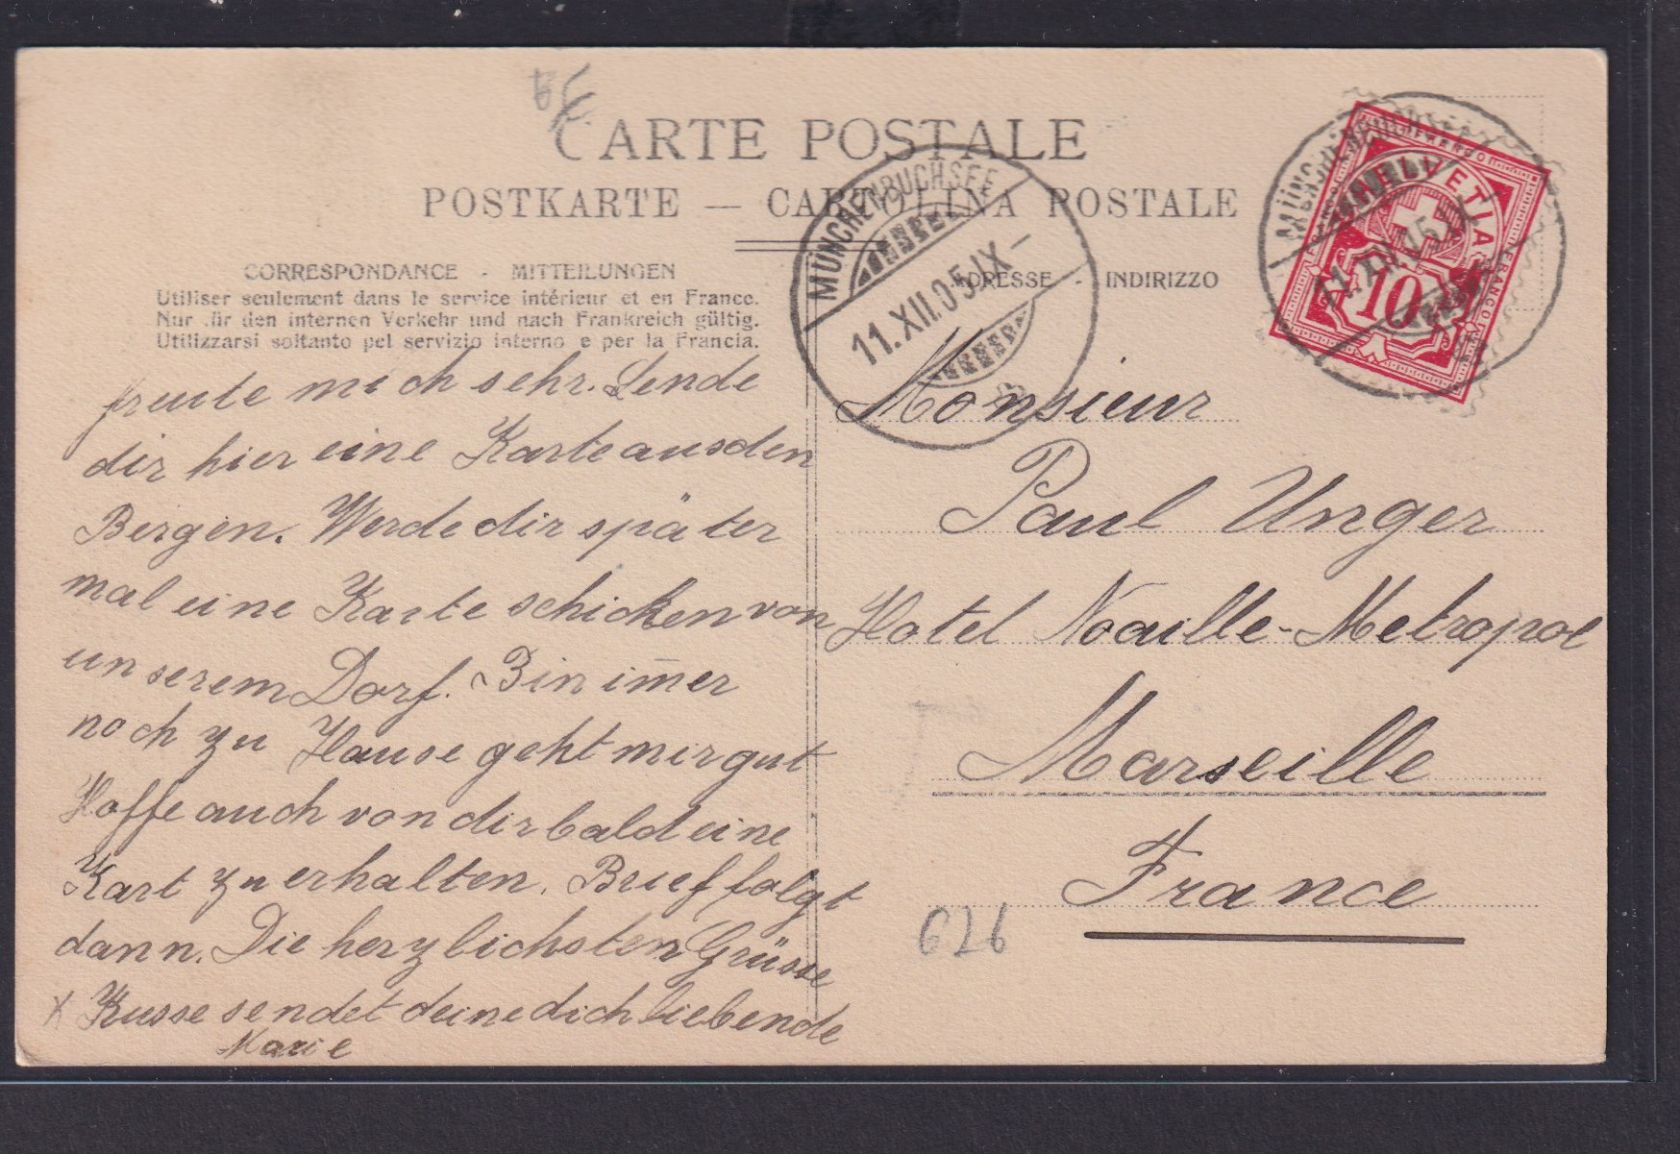 CARTE POSTALE
POSTKARTE — CARTOLINA POSTALE
CORRESPONDANCE - MITTEILUNGEN
Utiliser seulement dans le service intérieur et en France.
Nur für den internen Verkehr und nach Frankreich gültig.
Utilizzarsi soltanto pel servizio interno e per la Francia.
ADRESSE - INDIRIZZO
MÜNCHENBUCHSEE
11.XII.05.IX-
HELVETIA
FRANCO
10
11.XII.05.IX-
freute mich sehr. Sende
dir hier eine Karte aus den
Bergen. Werde dir später
mal eine Karte schicken von
unserem Dorf. Bin im̅er
noch zu Hause geht mir gut
Hoffe auch von dir bald eine
Kart zu erhalten. Brief folgt
dann. Die herzlichsten Grüsse
x Kusse sendet deine dich liebende
Marie
Monsieur
Paul Unger
Hotel Noaille-Metropol
Marseille
France
626